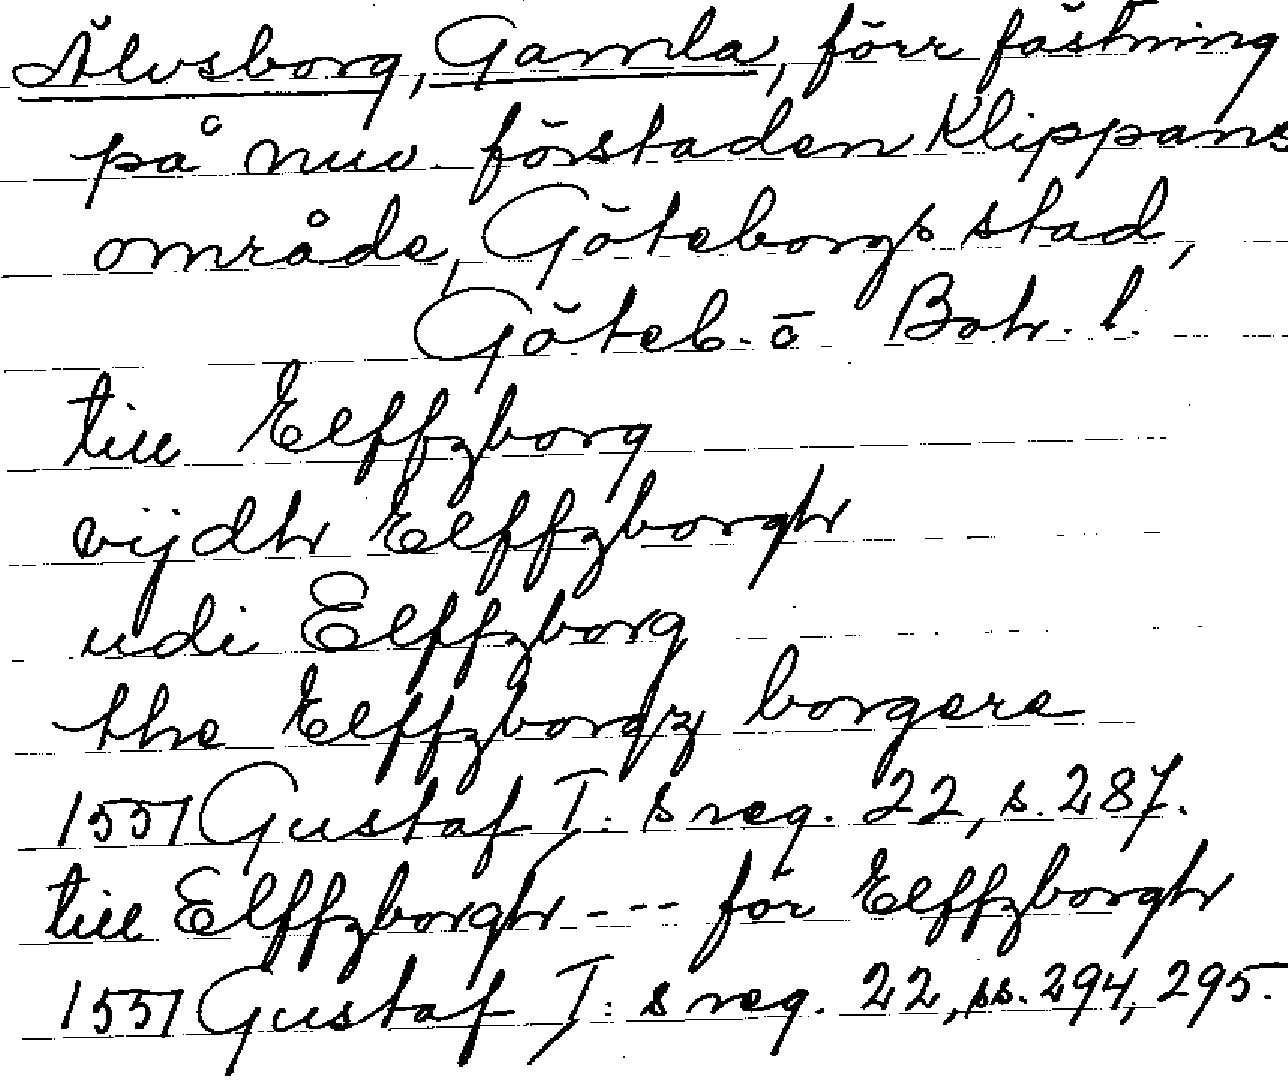 Älvsborg, Gamla, förr fästning
på nuv. förstaden Klippans
område, Göteborgs stad,
Göteb. o Boh. l.
till Elffzborg
vijdh Elffzborgh
udi Elffzborg
the Elffzborgz borgere
1551 Gustaf I:s reg. 22, s. 287.
till Elffzborgh --- för Elffzborgh
1551 Gustaf I:s reg. 22, ss. 294, 295.